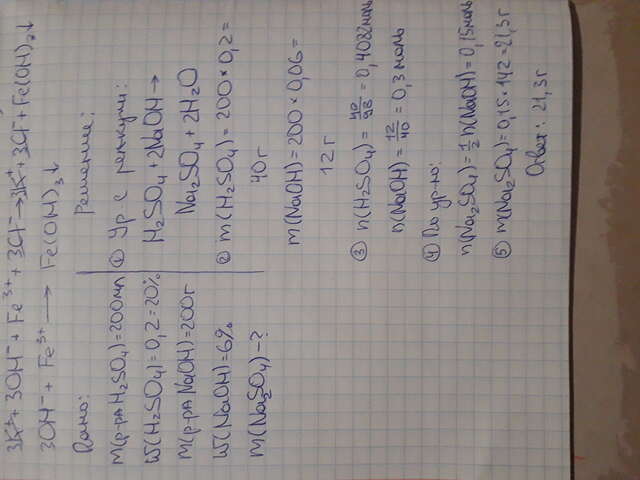 3K⁺ + 3OH⁻ + Fe³⁺ + 3Cl⁻ → 3K⁺ + 3Cl⁻ + Fe(OH)₃↓
3OH⁻ + Fe³⁺ → Fe(OH)₃↓
Дано:
m(р-ра H₂SO₄) = 200мл
W(H₂SO₄) = 0,2 = 20%
m(р-ра NaOH) = 200г
W(NaOH) = 6%
m(Na₂SO₄) - ?
Решение:
① Ур-е реакции:
H₂SO₄ + 2NaOH →
Na₂SO₄ + 2H₂O
② m(H₂SO₄) = 200 × 0,2 =
40г
m(NaOH) = 200 × 0,06 =
12г
③ n(H₂SO₄) = 40/98 = 0,4082моль
n(NaOH) = 12/40 = 0,3 моль
④ По ур-ю:
n(Na₂SO₄) = 1/2 n(NaOH) = 0,15моль
⑤ m(Na₂SO₄) = 0,15 × 142 = 21,3г
Ответ: 21,3г